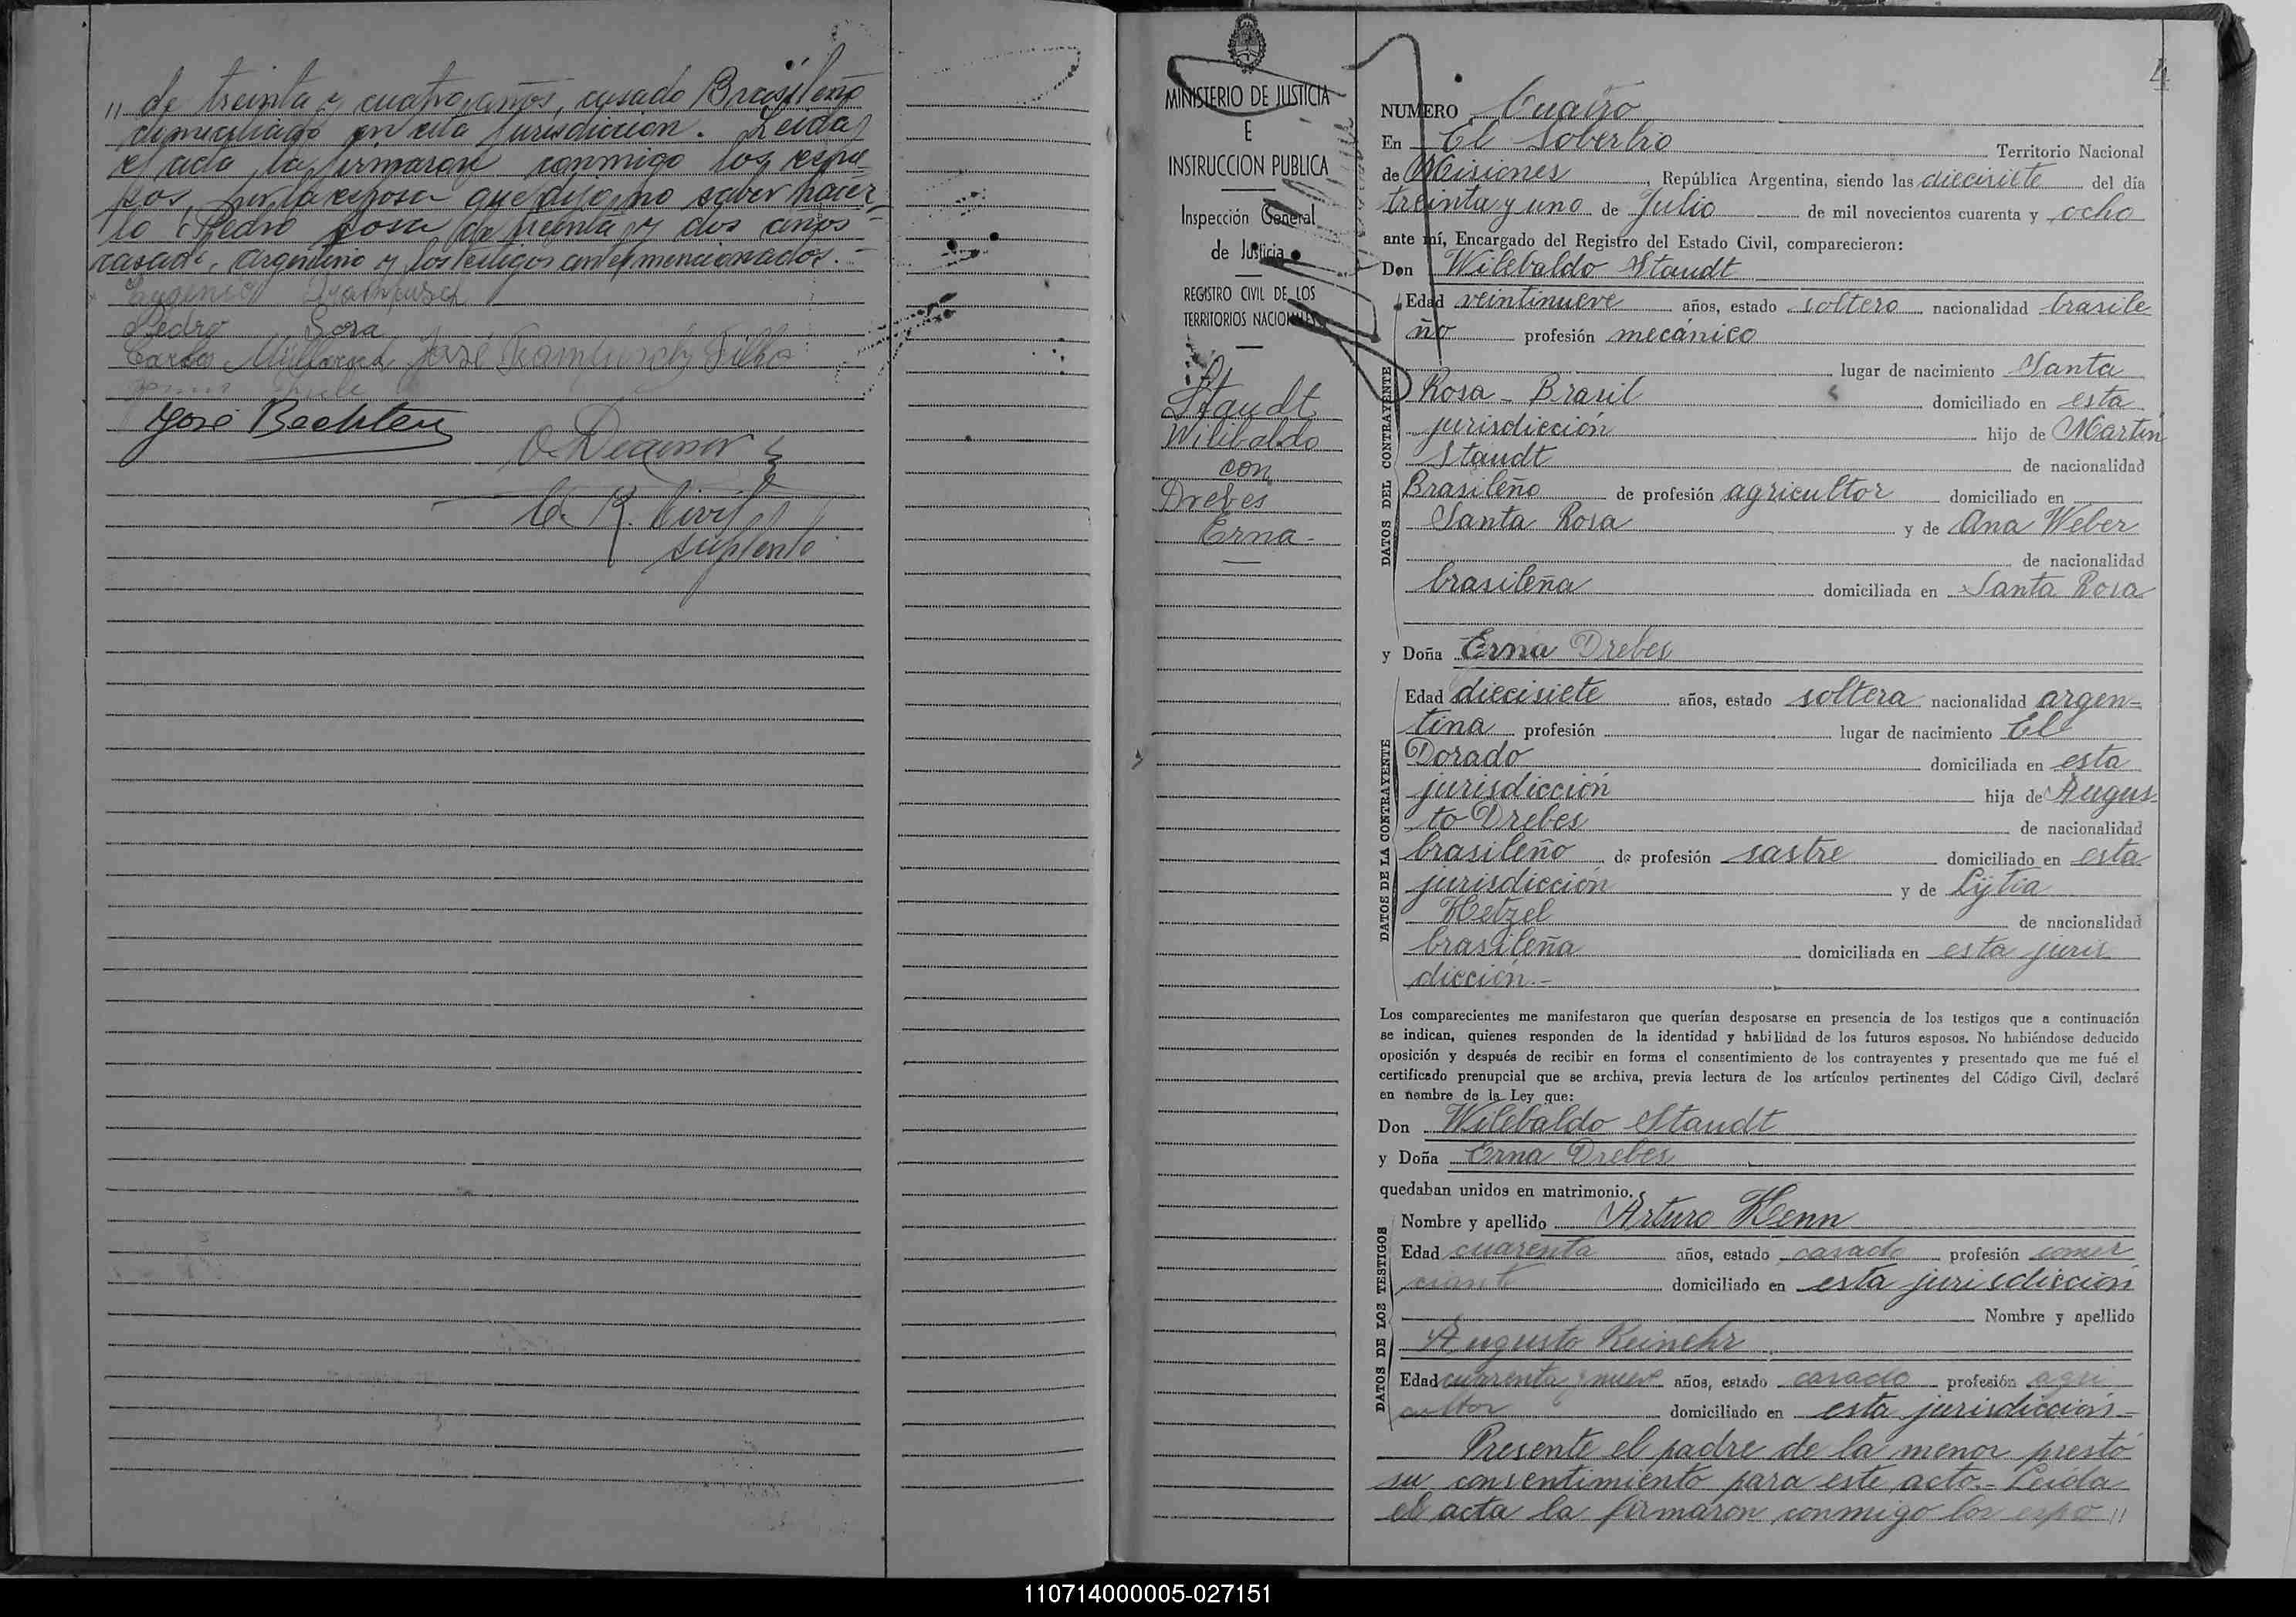 " de treinta y cuatro años, casado Brasileño
domiciliado en esta jurisdicción. Leida
el acta la firmaron conmigo los espo
sos, por la esposa que dijo no saber hacer
lo Pedro Sosa de treinta y dos años
casado, argentino y los testigos antes mencionados.-
Pedro Sosa
José Kampusch Filho
José Bechler
E. R. Civil
suplente
4
MINISTERIO DE JUSTICIA
E
INSTRUCCION PUBLICA
Inspección General
de Justicia
REGISTRO CIVIL DE LOS
TERRITORIOS NACIONALES
Staudt
Wilibaldo
con
Drebes
Erna-
NUMERO Cuatro
En El Soberbio Territorio Nacional
de Misiones, República Argentina, siendo las diecisiete del día
treinta y uno de Julio de mil novecientos cuarenta y ocho
ante mí, Encargado del Registro del Estado Civil, comparecieron:
Don Wilebaldo Staudt
DATOS DEL CONTRAYENTE
Edad veintinueve años, estado soltero nacionalidad brasile
ño profesión mecánico
lugar de nacimiento Santa
Rosa - Brasil domiciliado en esta
jurisdicción hijo de Martin
Staudt de nacionalidad
Brasileño de profesión agricultor domiciliado en
Santa Rosa y de Ana Weber
de nacionalidad
brasileña domiciliada en Santa Rosa
y Doña Erna Drebes
DATOS DE LA CONTRAYENTE
Edad diecisiete años, estado soltera nacionalidad argen=
tina profesión lugar de nacimiento El
Dorado domiciliada en esta
jurisdicción hija de Augus
to Drebes de nacionalidad
brasileño de profesión sastre domiciliado en esta
jurisdicción y de Lijtia
Hetzel de nacionalidad
brasileña domiciliada en esta juris
dicción.-
Los comparecientes me manifestaron que querían desposarse en presencia de los testigos que a continuación
se indican, quienes responden de la identidad y habilidad de los futuros esposos. No habiéndose deducido
oposición y después de recibir en forma el consentimiento de los contrayentes y presentado que me fué el
certificado prenupcial que se archiva, previa lectura de los artículos pertinentes del Código Civil, declaré
en nombre de la Ley que:
Don Wilebaldo Staudt
y Doña Erna Drebes
quedaban unidos en matrimonio.
DATOS DE LOS TESTIGOS
Nombre y apellido Arturo Henn
Edad cuarenta años, estado casado profesión comer
ciante domiciliado en esta jurisdicción
Nombre y apellido
Augusto Reinehr
Edad cuarenta y nueve años, estado casado profesión agri
cultor domiciliado en esta jurisdicción-
Presente el padre de la menor prestó
su consentimiento para este acto.- Leida
el acta la firmaron conmigo los espo "
110714000005-027151